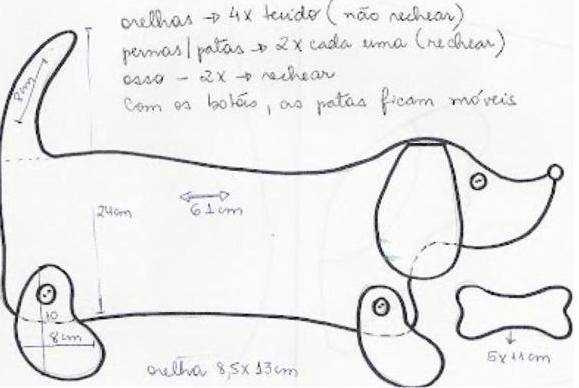 orelhas → 4x tecido (não rechear)
pernas/patas → 2x cada uma (rechear)
osso - 2x → rechear
com os botões, as patas ficam móveis
8cm
24cm
61cm
10
8cm
orelha 8,5x13cm
5x11cm